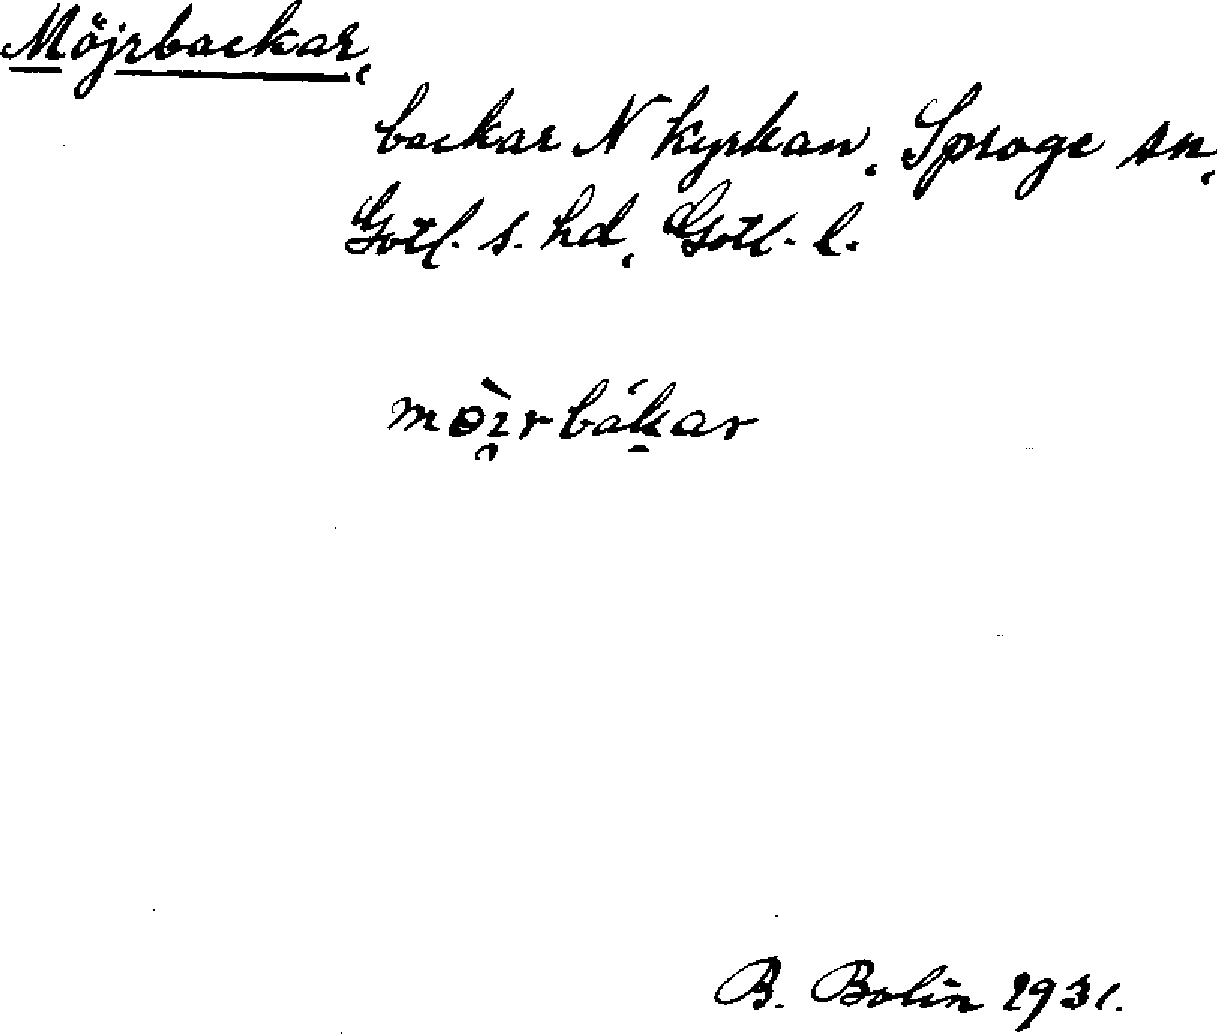 Möjrbackar,
backar N kyrkan, Sproge sn,
Gotl. s. hd, Gotl. l.
mɵ̀ırbákar
B. Bolin 1931.